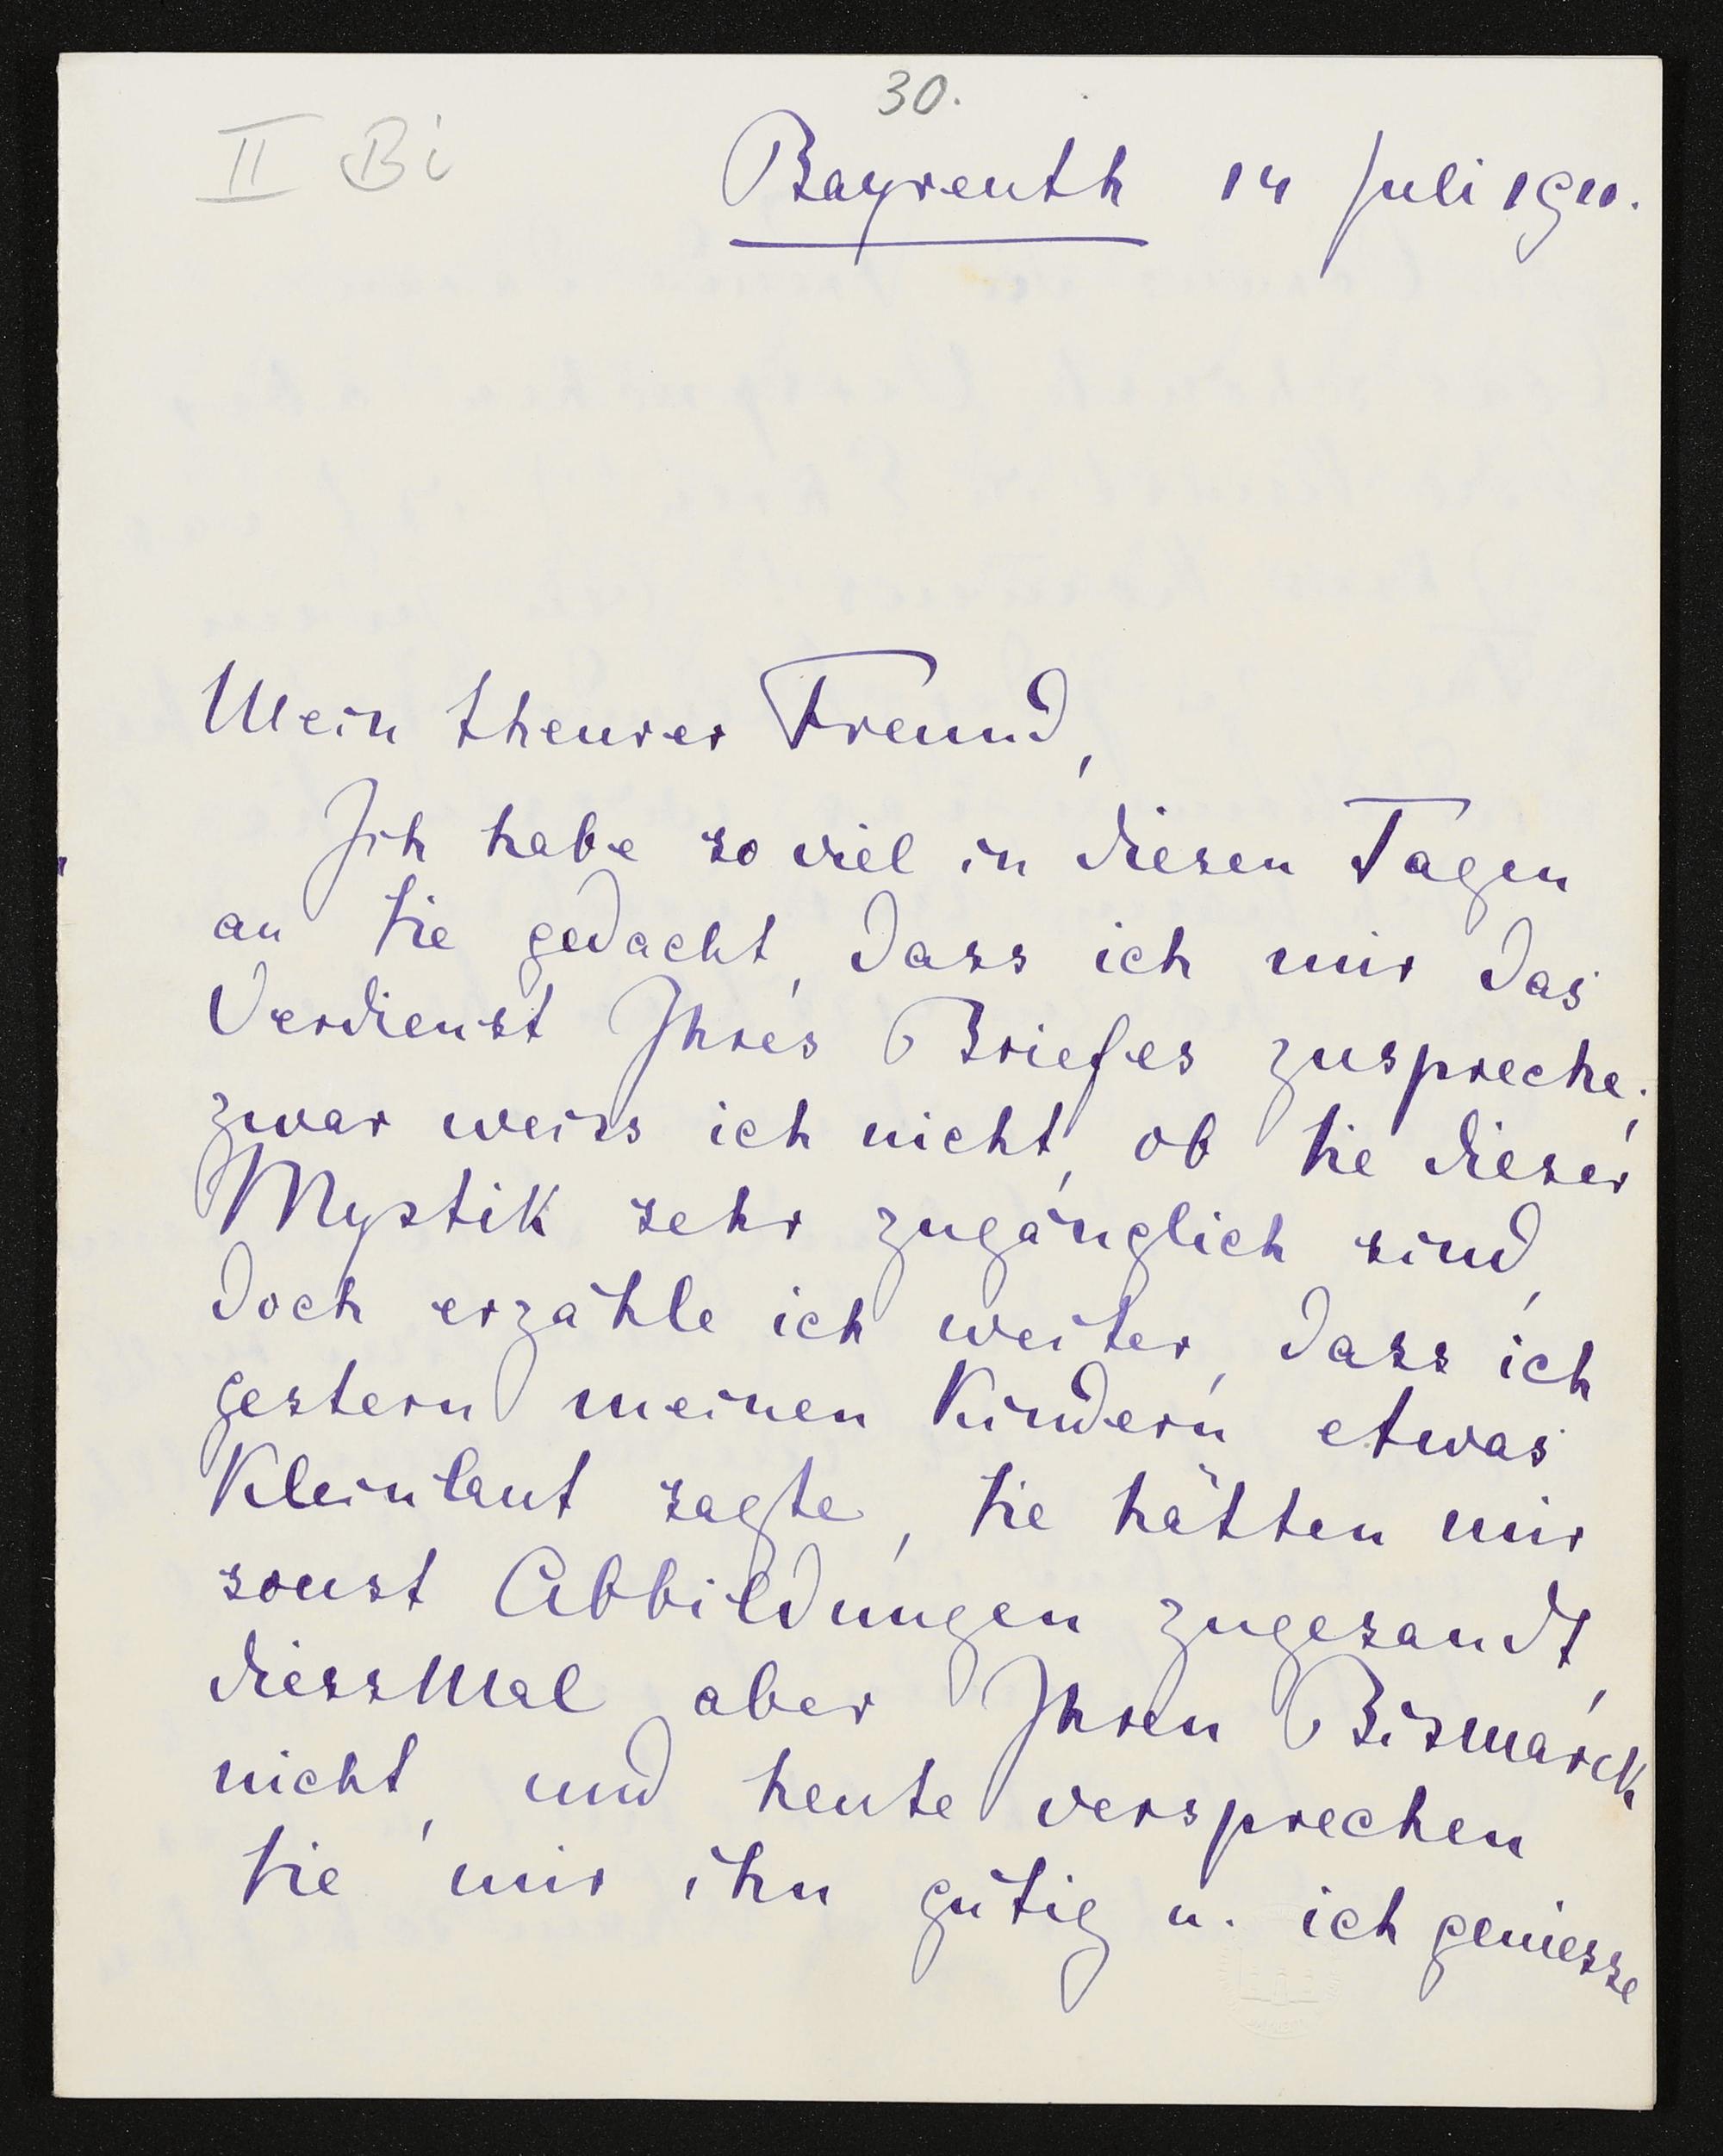 30.
II Bi
Bayreuth 14 Juli 1910.
Mein theurer Freund,
Ich habe so viel in diesen Tagen
an Sie gedacht, dass ich mir das
Verdienst Ihres Briefes zuspreche;
zwar weiss ich nicht, ob Sie dieser
Mystik sehr zugänglich sind,
doch erzähle ich weiter, dass ich
gestern meinen Kindern etwas
Kleinlaut sagte, Sie hätten mir
sonst Abbildungen zugesandt,
diessMal aber Ihren Bismarck
nicht, und heute versprechen
Sie mir ihn gütig u. ich geniesse